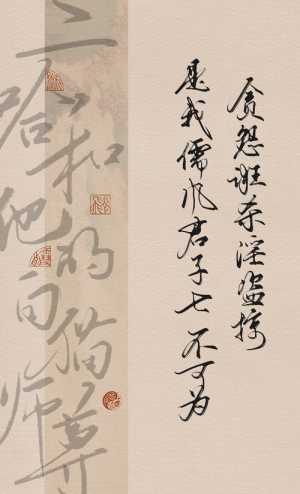 贪怨诳杀淫盗掠
是我儒风君子七不可为
二哈和
他的白猫
师尊